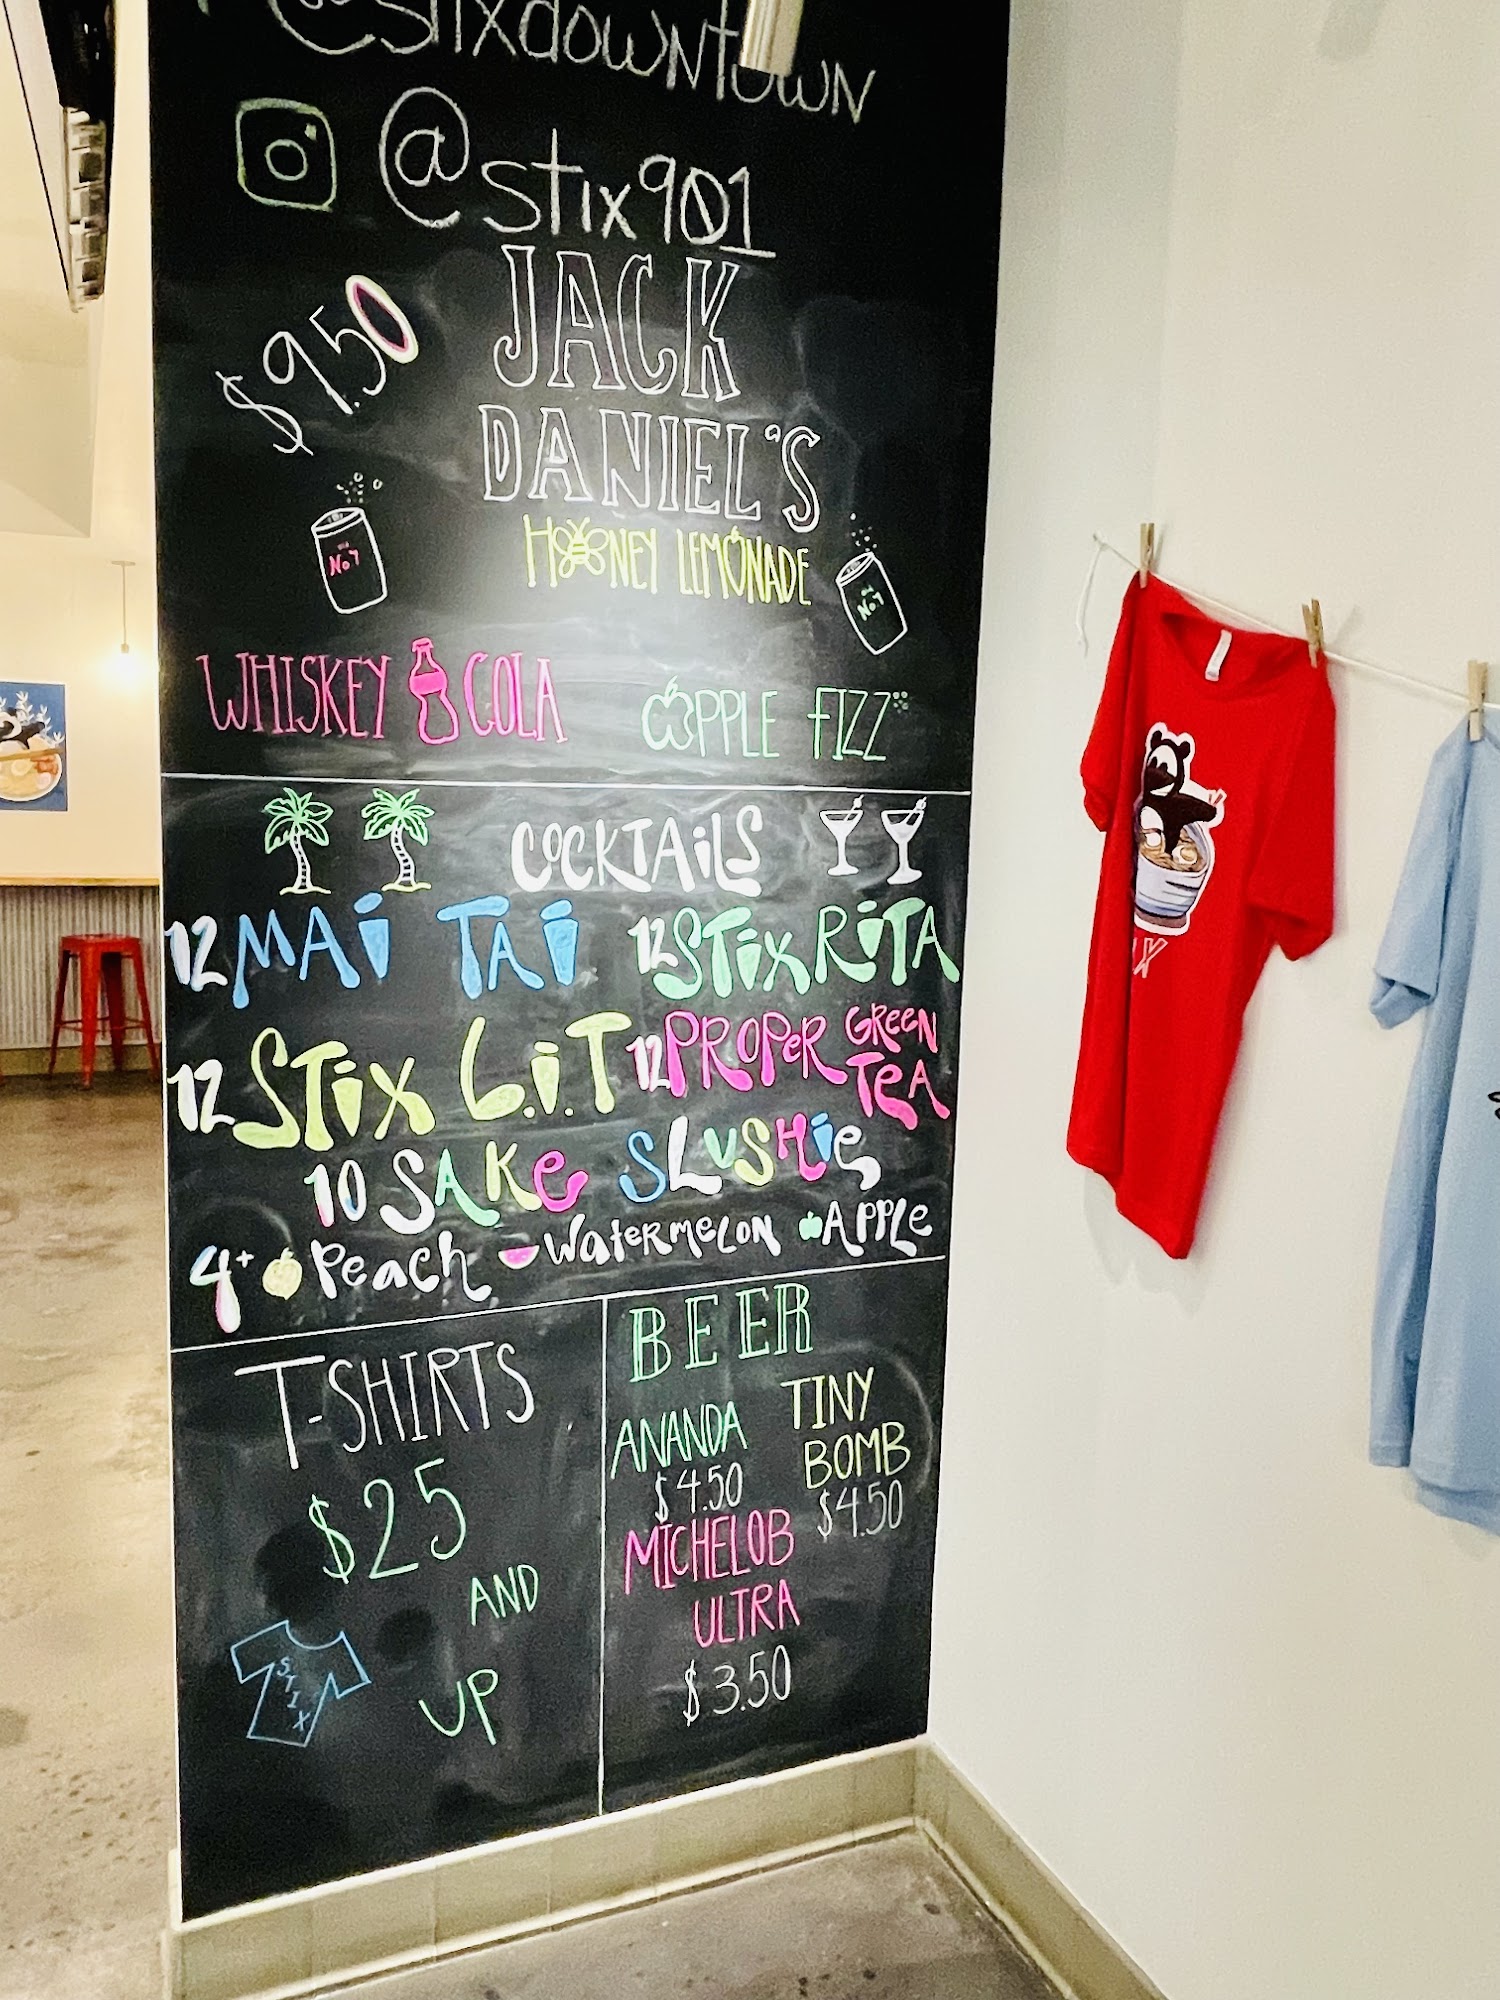 @stixdowntown
@stix901
$9.50
JACK
DANIEL'S
HONEY LEMONADE
No 7
No 7
WHISKEY COLA
APPLE FIZZ
COCKTAiLS
12 MAi TAi
12 STiX RiTA
12 STiX L.i.T
12 PROPeR GReeN TeA
10 SAKe SLuSHie
4+ Peach WateRMeLON APPLe
T-SHIRTS
$25
AND
UP
STIX
BEER
ANANDA
$4.50
TINY
BOMB
$4.50
MICHELOB
ULTRA
$3.50